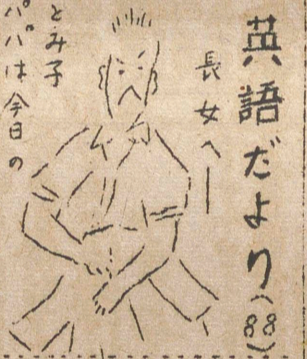 英語だより(88)
長女へ―
とみ子
パパは今日の